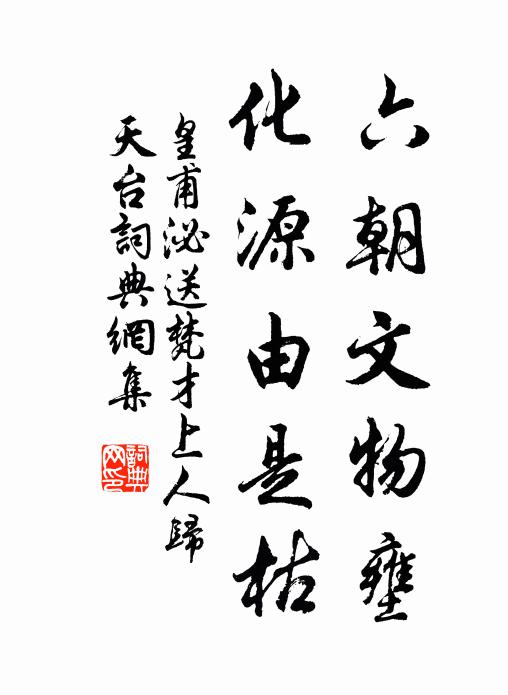 六朝文物壅
化源由是枯
皇甫泌送梵才上人歸
天台詞典網集
詞典网印